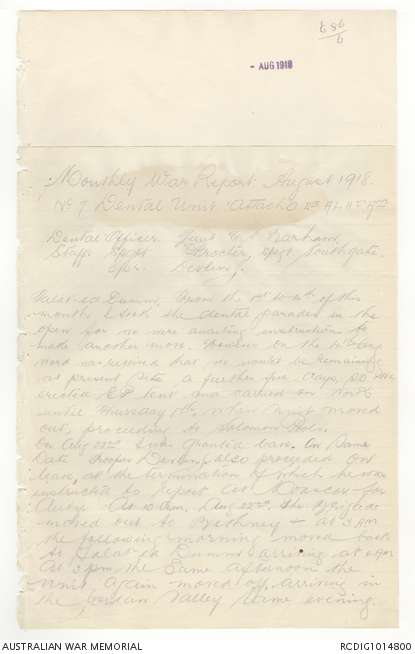 - AUG 1918
Monthly War Report. August 1918.
No 7 Dental Unit Attach'd
Dental Officer
Staff Sgt Southgate.
Talat-ed-Dumm. From the to of this
month I took the dental parades in the
open for we were awaiting instructions to
make another move. However on the
word was received that we would be remaining
at present site a further five days, so
erected E.P. tent and carried on work
until Thursday when unit moved
out, proceeding to Solomon Pools.
On Aug 22nd I was granted leave. On same
date Trooper also proceeded on
leave, at the termination of which he was
instructed to report at Moascar for
duty. At 10 pm, Aug 22nd. the Brigade
moved out to Bethney & at 3 AM
the following morning moved back
to Talat ed Dumm arriving at AM
At 3 pm the same afternoon the
Unit again moved off, arriving in
the Jordan Valley same evening.
AUSTRALIAN WAR MEMORIAL
RCDIG1014800